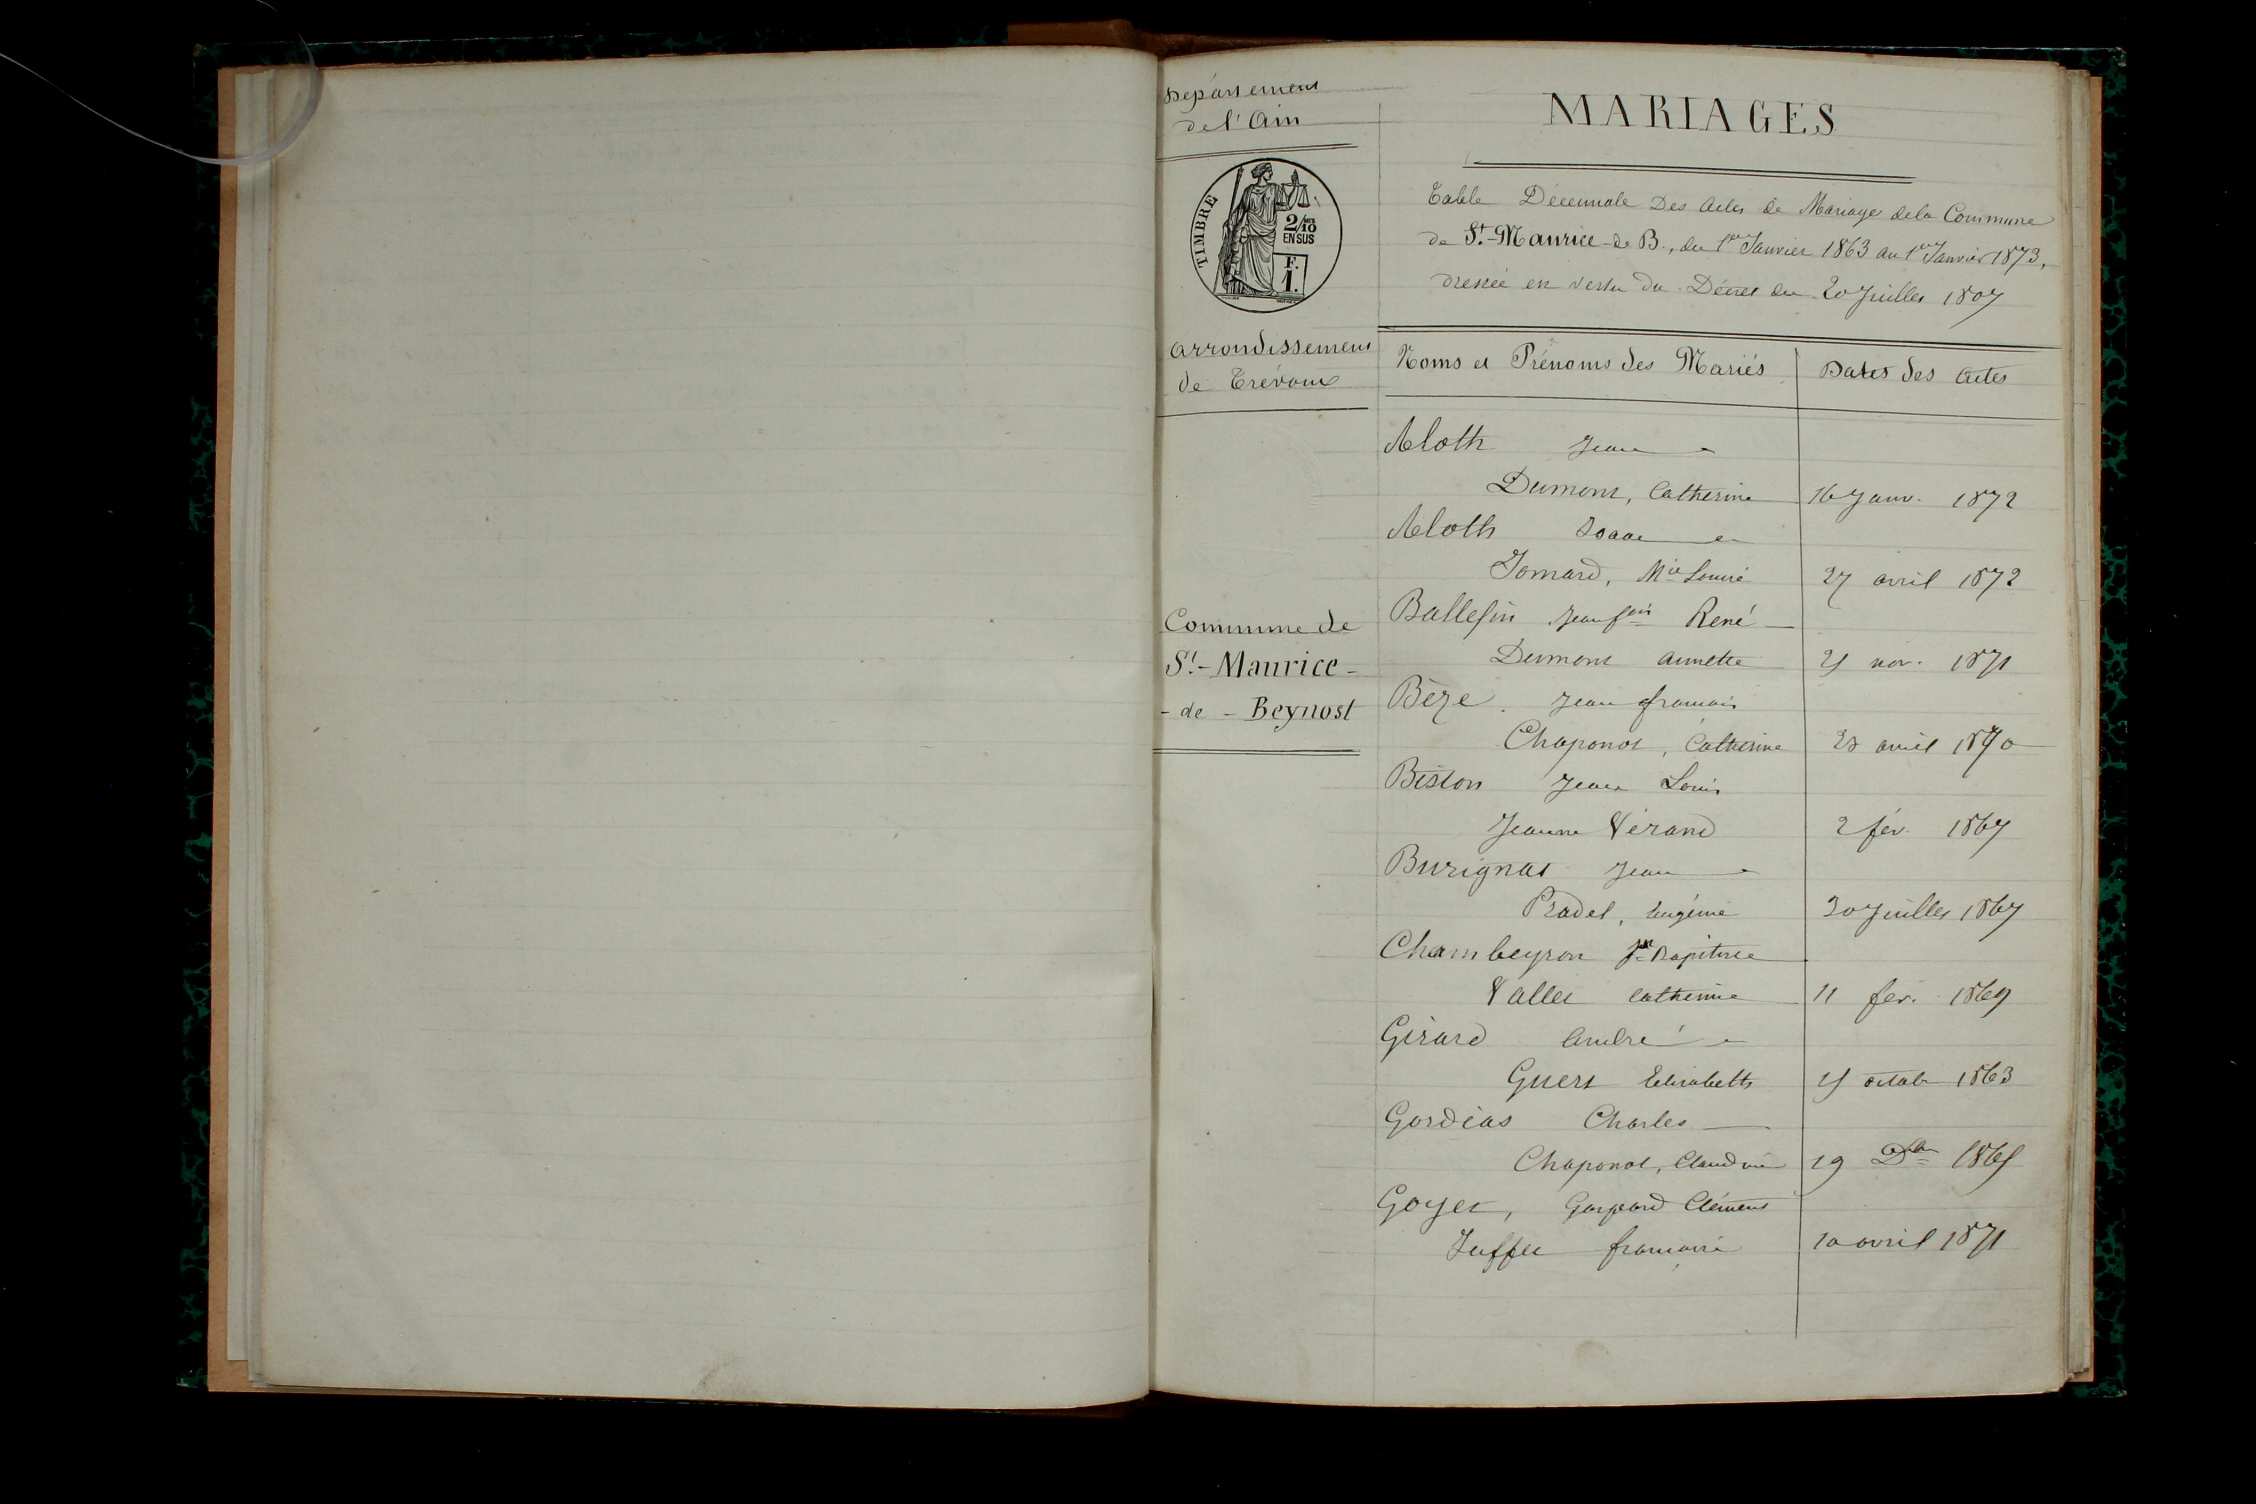 Département
de l'Ain
TIMBRE
2/10
EN SUS
F.
1.
Arrondissement
de Trévoux
Commune de
St.-Maurice-
- de - Beynost
MARIAGES
Table Décennale Des Actes de Mariage de la Commune
de St.-Maurice-de B., du 1er Janvier 1863 au 1er Janvier 1873,
dressée en vertu du Décret du 20 Juillet 1807
Noms et Prénoms des Mariés
Dates des Actes
Aloth Jean
Dumont, Catherine 16 Janv. 1872
Aloth
Jomard, Mie Louise 27 avril 1872
Ballefin Jean fois René
Dumont Annette nov. 1871
Bèze. Jean françois
Chaponot, Catherine avril 1870
Biston Jean Louis
Jeanne Vérand 2 fév. 1867
Burignat Jean
Pradel, Eugénie 30 Juillet 1867
Chambeyron Jn Baptiste
Vallet Catherine 11 fév. 1869
Girard André
Guers Elisabeth octob 1863
Gordias Charles
Chaponot, Claudine 19 Dbre 1865
Goyet, Gaspard Clément
françoise 10 avril 1871